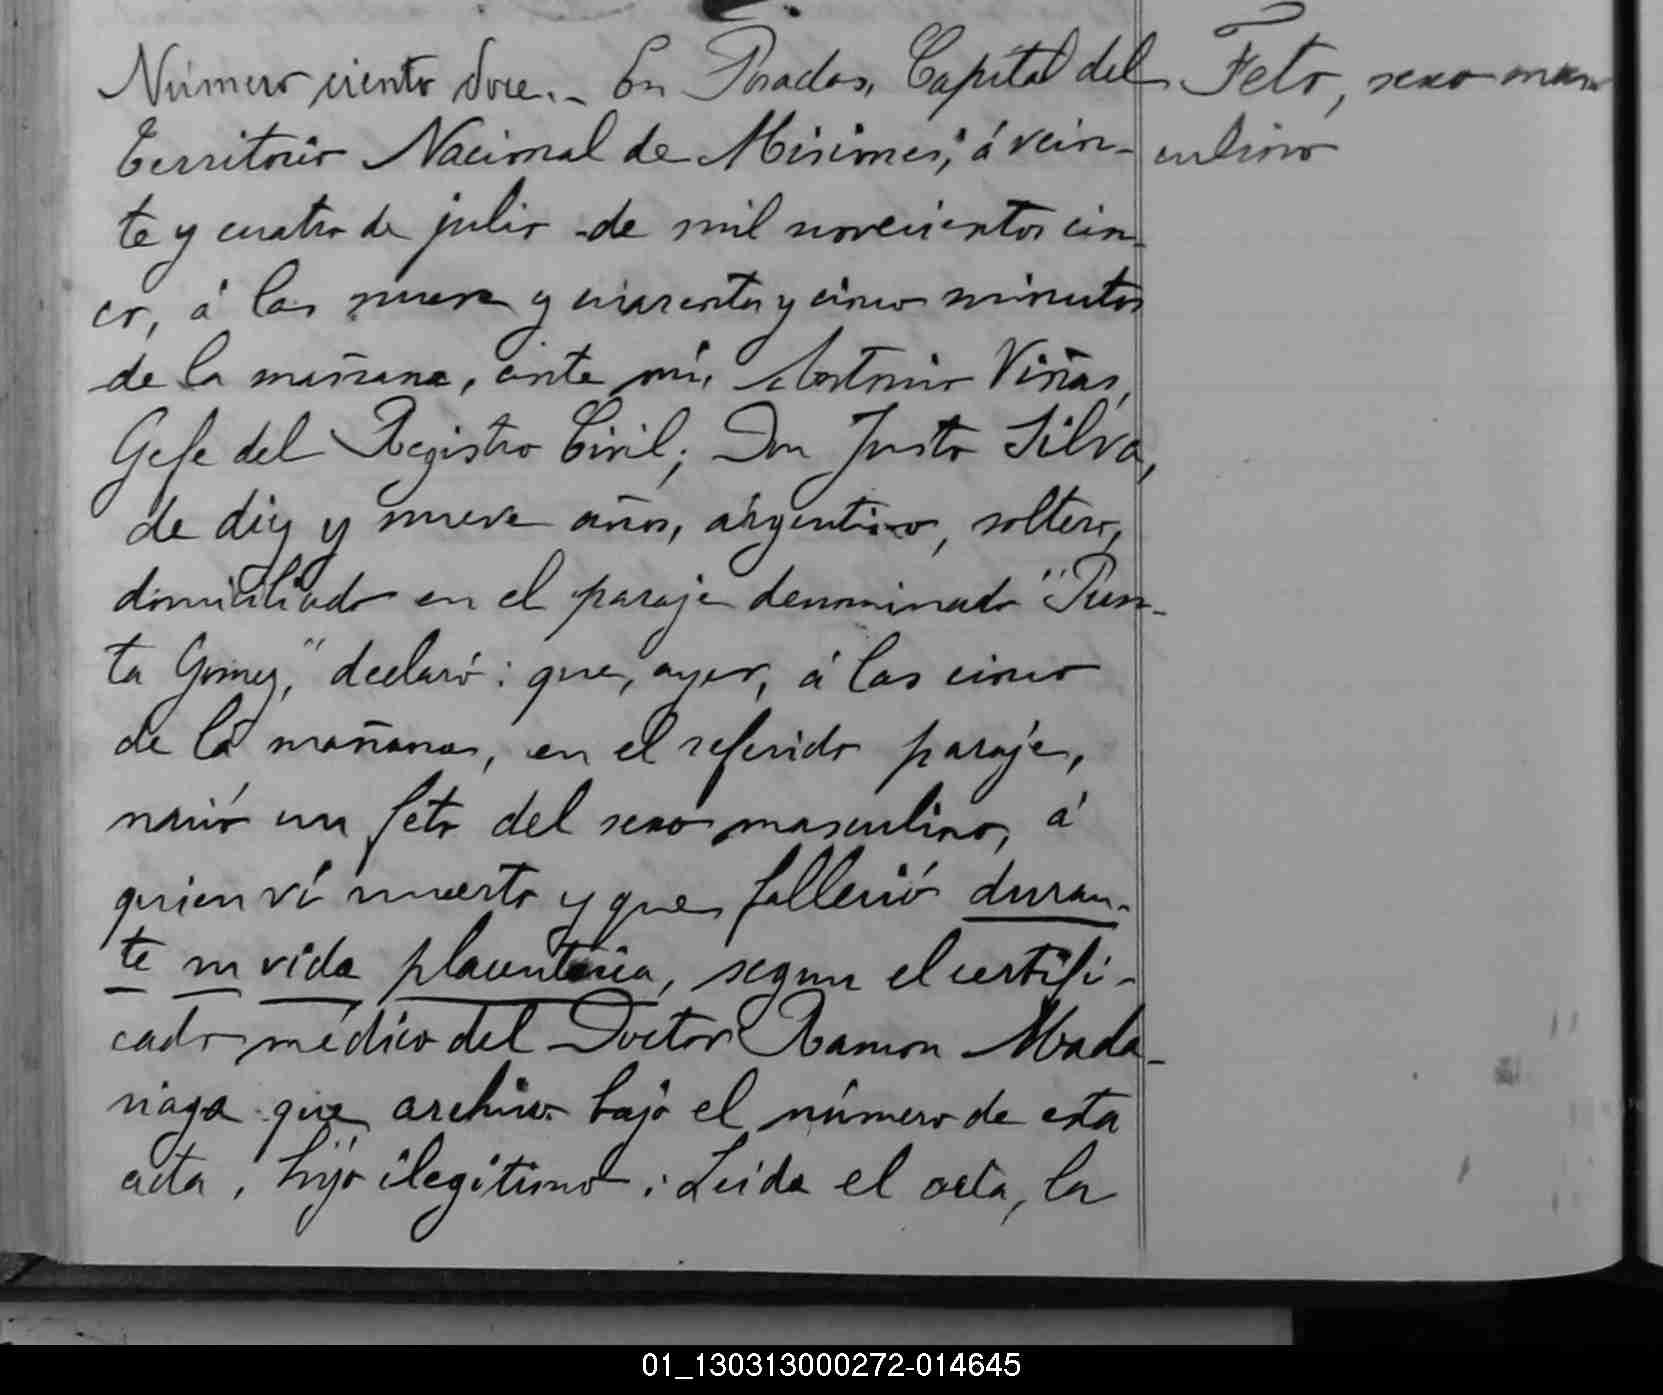 Número ciento doce.- En Posadas, Capital del
Territorio Nacional de Misiones, á vein-
te y cuatro de julio de mil novecientos cin-
co, á las nueve y cuarenta y cinco minutos
de la mañana, ante mí, Antonio Viñas,
Gefe del Registro Civil; Don Justo Silva,
de diez y nueve años, argentino, soltero,
domiciliado en el paraje denominado "Pun-
ta Gomez," declaró: que, ayer, á las cinco
de la mañana, en el referido paraje,
nació un feto del sexo masculino, á
quien ví muerto y que falleció duran-
te su vida placentaria, segun el certifi-
cado médico del Doctor Ramon Mada-
riaga que archivo bajo el número de esta
acta, hijo ilegitimo: Leida el acta, la
Feto, sexo mas-
culino
01_130313000272-014645